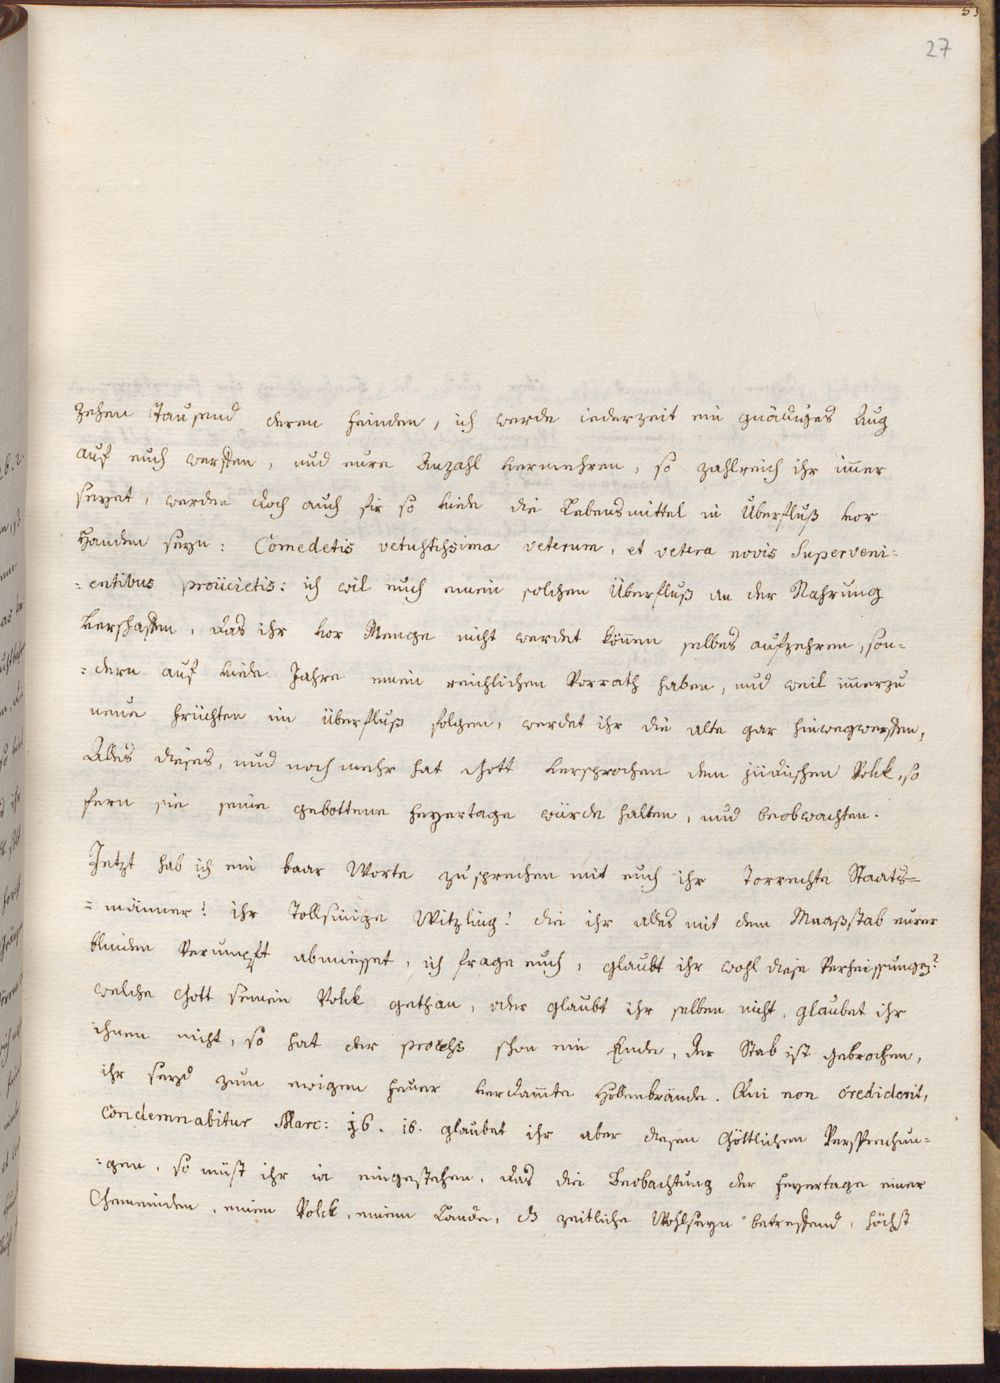 27
zehen Tausend deren feinden, ich werde iederzeit ein gnädiges Aug
auf euch werffen, und eure Anzahl vermehren, so zahlreich ihr im̅er
seyet, werden doch auch für so viele die Lebensmittel in Überfluß vor
Handen seyn: Com̅edetis vetustissima veterum, et vetera novis superveni=
=entibus proiicietis: ich wil euch einen solchen Überfluß an der Nahrung
verschaffen, das ihr vor Menge nicht werdet kön̅en selbes aufzehren, son=
=dern auf viele Jahre einen reichlichen Vorrath haben, und weil im̅erzu
neue früchten im Überfluß folgen, werdet ihr die alte gar hinwegwerffen,
Alles dieses, und noch mehr hat Gott versprochen dem jüdischen Volk, so
fern sie seine gebottene feyertage würde halten, und beobwachten.
Jetzt hab ich ein baar Worte zu sprechen mit euch ihr Torrechte Staats=
=männer! ihr Tollsinige Witzling! die ihr alles mit dem Maaßstab eurer
blinden Vernunft abmesset, ich frage euch, glaubt ihr wohl diese Verheissungen?
welche Gott seinem Volk gethan, oder glaubt ihr selben nicht, glaubet ihr
ihnen nicht, so hat der process schon ein Ende, der Stab ist gebrochen,
ihr seyd zum ewigen feuer verdam̅te Höllenbrände. Qui non crediderit,
condemnabitur Marc: 16. 16. glaubet ihr aber diesen Göttlichen Versprechun=
=gen, so müst ihr ia eingestehen, das die Beobachtung der feyertage einer
Gemeinden, einem Volck, einem Lande, dz zeitliche Wohlseyn betreffend, höchst